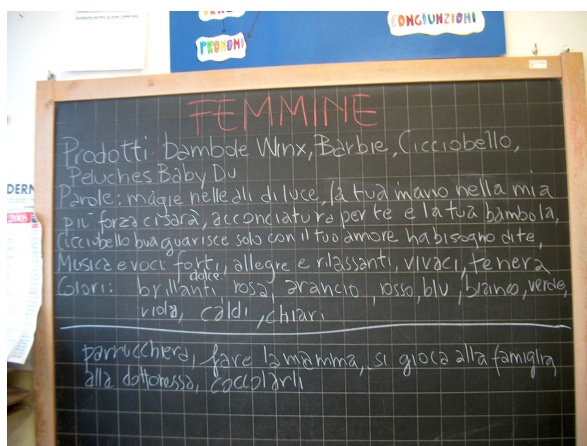 PRONOMI
CONGIUNZIONI
FEMMINE
Prodotti: bambole Winx, Barbie, Cicciobello,
Peluches Baby Du
Parole: magie nelle ali di luce, la tua mano nella mia
più forza ci sarà, acconciatura per te e la tua bambola,
Cicciobello bua guarisce solo con il tuo amore ha bisogno di te,
Musica e voci: forti, allegre e rilassanti, vivaci, tenera
dolce
Colori: brillanti rosa, arancio, rosso, blu, bianco, verde,
viola, caldi, chiari
parrucchera, fare la mamma, si gioca alla famiglia,
alla dottoressa, coccolarli